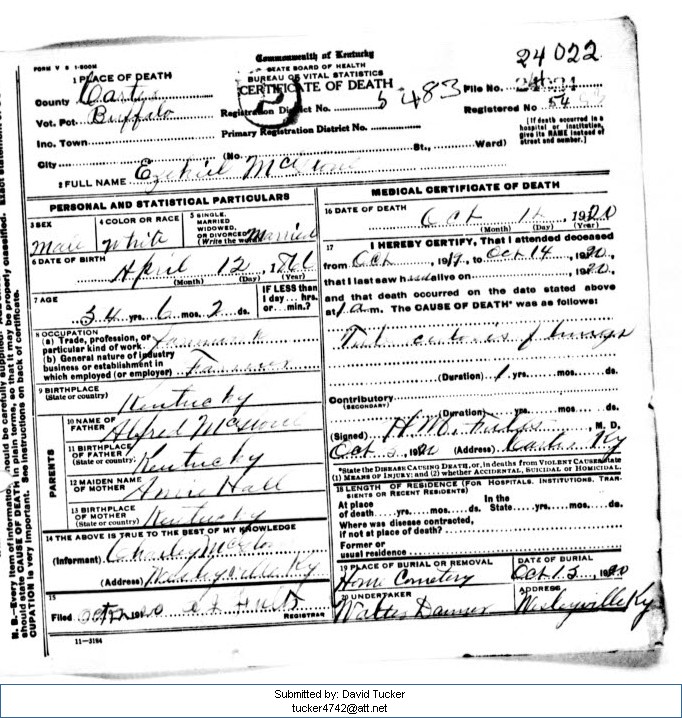 FORM V S 1-200M
Commonwealth of Kentucky
STATE BOARD OF HEALTH
BUREAU OF VITAL STATISTICS
CERTIFICATE OF DEATH
24022
1 PLACE OF DEATH
County Carter
Vot. Pct. Buffalo
Inc. Town
City
Registration District No.
5483
Primary Registration District No.
File No.
Registered No. 54
(No. St., Ward)
[If death occurred in a
hospital or institution,
give its NAME instead of
street and number.]
2 FULL NAME Ezekiel
PERSONAL AND STATISTICAL PARTICULARS
3 SEX
Male
4 COLOR OR RACE
White
5 SINGLE,
MARRIED
WIDOWED,
OR DIVORCED
(Write the word) Married
6 DATE OF BIRTH
April 12, 1
(Month) (Day) (Year)
7 AGE
34 yrs. 6 mos. 2 ds.
IF LESS than
1 day... hrs.
or... min.?
8 OCCUPATION
(a) Trade, profession, or
particular kind of work
(b) General nature of industry
business or establishment in
which employed (or employer) Farmer
9 BIRTHPLACE
(State or country) Kentucky
PARENTS
10 NAME OF
FATHER Alfred
11 BIRTHPLACE
OF FATHER
(State or country) Kentucky
12 MAIDEN NAME
OF MOTHER Hall
13 BIRTHPLACE
OF MOTHER
(State or country) Kentucky
14 THE ABOVE IS TRUE TO THE BEST OF MY KNOWLEDGE
(Informant) Charley
(Address) Wesleyville Ky
15
Filed 191
REGISTRAR
11-3184
MEDICAL CERTIFICATE OF DEATH
16 DATE OF DEATH
Oct 14, 1920
(Month) (Day) (Year)
17 I HEREBY CERTIFY, That I attended deceased
from Oct, 19 to Oct 14, 1920,
that I last saw h alive on 1920,
and that death occurred on the date stated above
at 1 a m. The CAUSE OF DEATH* was as follows:
of lungs
(Duration) 1 yrs. mos. ds.
Contributory
(SECONDARY)
(Duration) yrs. mos. ds.
(Signed) H.M. M. D.
Oct (Address) Ky
*State the DISEASE CAUSING DEATH, or, in deaths from VIOLENT CAUSES state
(1) MEANS OF INJURY; and (2) whether ACCIDENTAL, SUICIDAL or HOMICIDAL.
18 LENGTH OF RESIDENCE (FOR HOSPITALS, INSTITUTIONS, TRANSIENTS OR RECENT RESIDENTS)
At place
of death yrs. mos. ds.
In the
State yrs. mos. ds.
Where was disease contracted,
if not at place of death?
Former or
usual residence
19 PLACE OF BURIAL OR REMOVAL
Home Cemetery
DATE OF BURIAL
Oct 15, 1920
20 UNDERTAKER
Walter
ADDRESS
Wesleyville Ky
N. B.—Every item of information should be carefully supplied.
should state CAUSE OF DEATH in plain terms, so that it may be properly classified. Exact statement of
CUPATION is very important. See instructions on back of certificate.
Submitted by: David Tucker
tucker4742@att.net